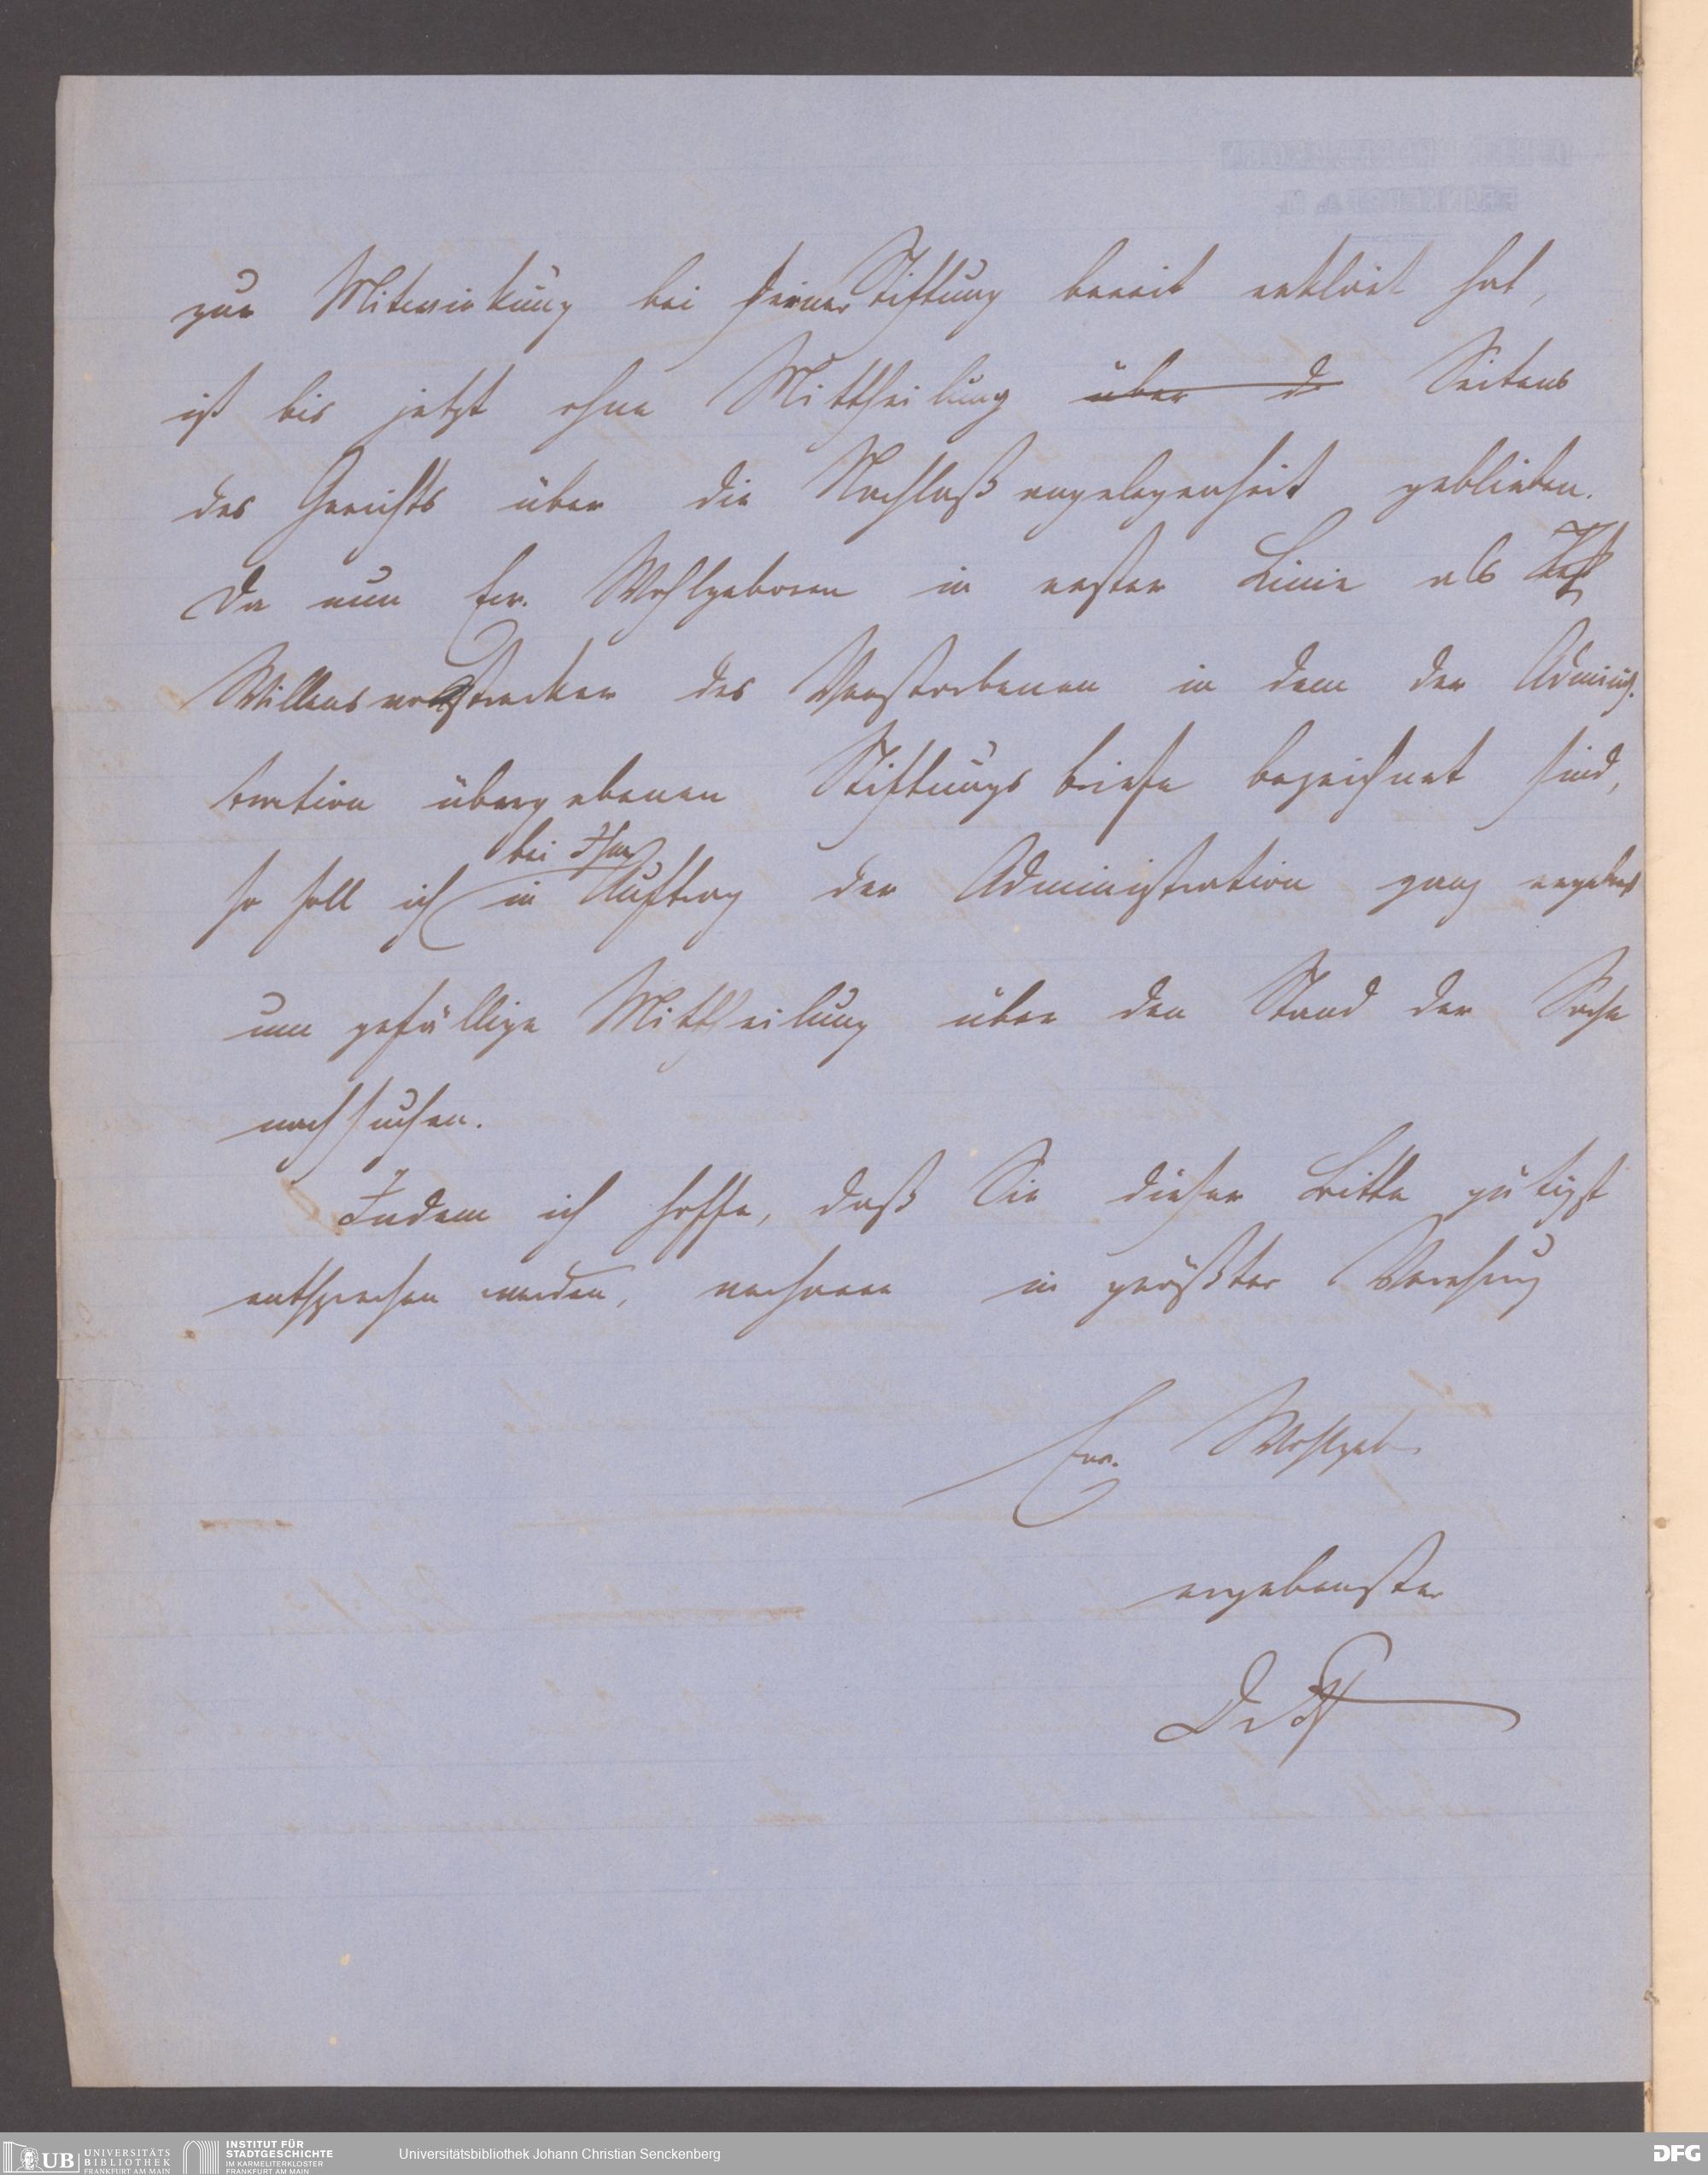 zur Mitwirkung bei seiner Stiftung bereit erklärt hat,
ist bis jetzt ohne Mittheilung über d Seitens
des Gerichts über die Nachlaßangelegenheit geblieben.
Da nun Ew. Wohlgeboren in erster Linie als
Willensvollstrecker des Verstorbenen in dem der Adminis-
tration übergebenen Stiftungsbriefe bezeichnet sind,
bei Ihnen
so soll ich in Auftrag der Administration ganz ergebenst
um gefällige Mittheilung über den Stand der Sache
nachsuchen.
Indem ich hoffe, daß Sie dieser Bitte gütigst
entsprechen werden, verharre in größter Verehrung
Ew. Wohlgeb
ergebenster
Dr
UB UNIVERSITÄTS
BIBLIOTHEK
FRANKFURT AM MAIN
INSTITUT FÜR
STADTGESCHICHTE
IM KARMELITERKLOSTER
FRANKFURT AM MAIN
Universitätsbibliothek Johann Christian Senckenberg
DFG